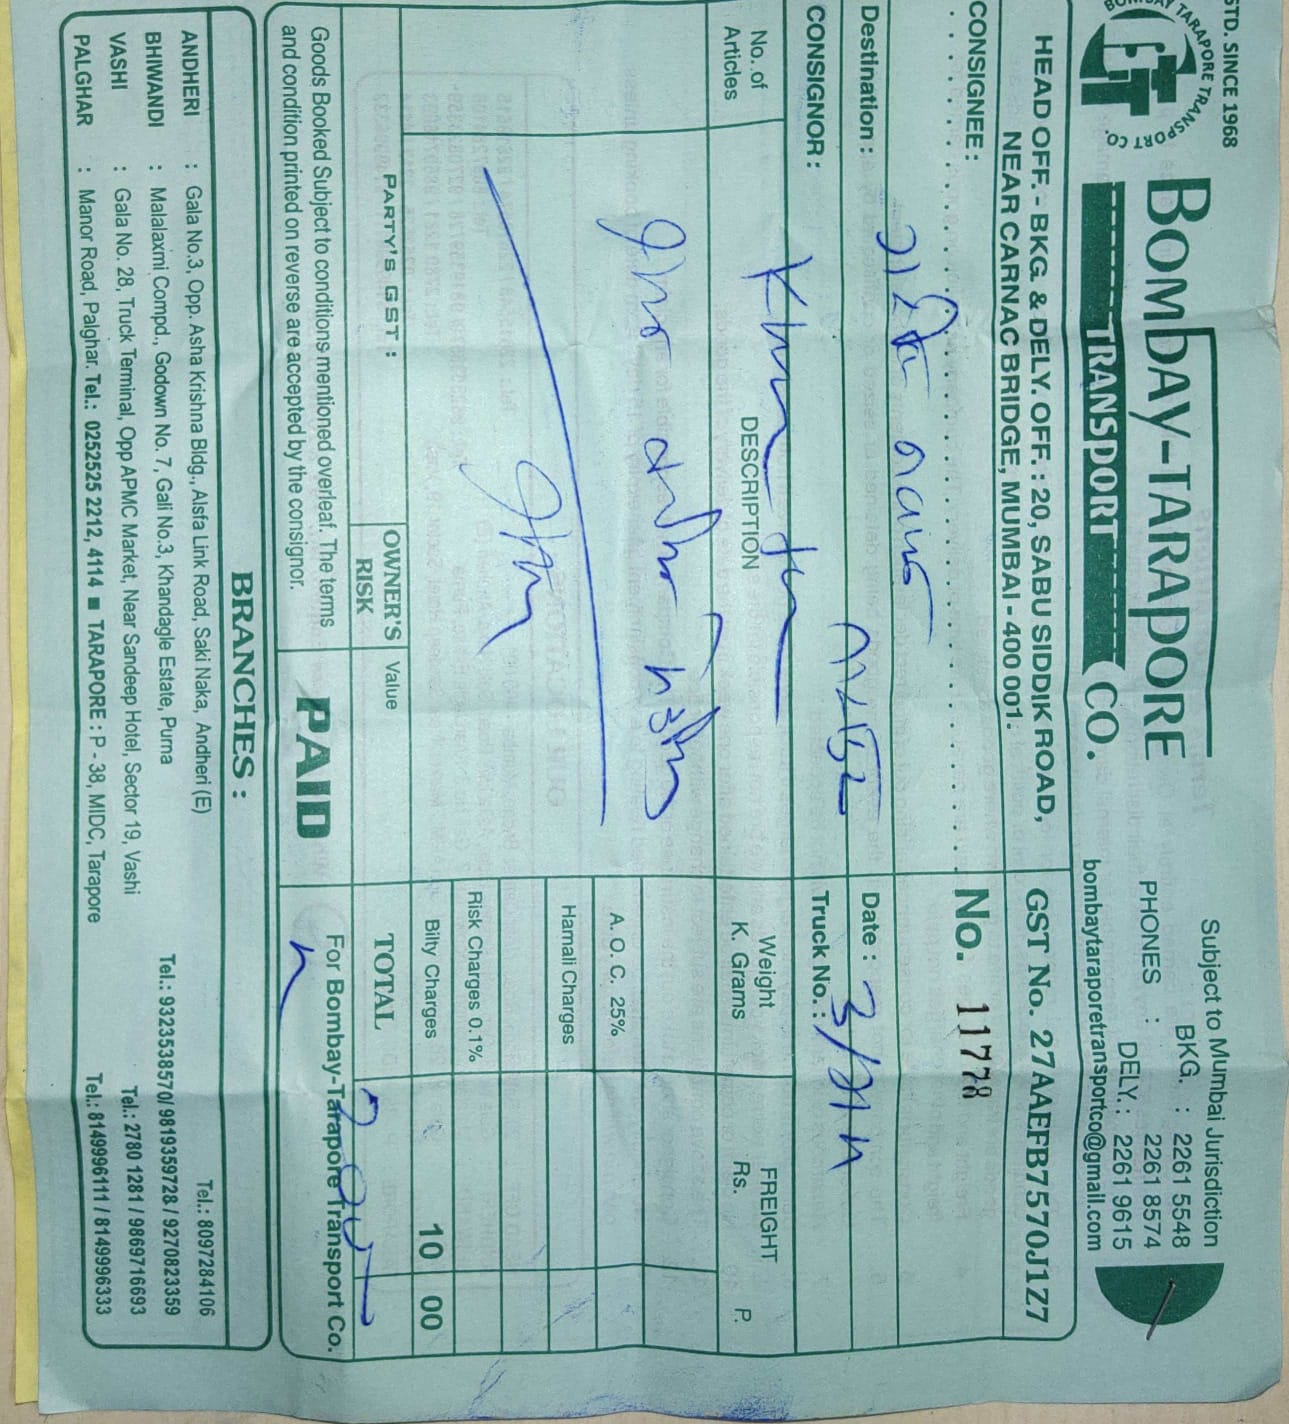 STD. SINCE 1968
BOMBAY TARAPORE TRANSPORT CO.
BTT
BOMBAY-TARAPORE
TRANSPORT CO.
Subject to Mumbai Jurisdiction
BKG. : 2261 5548
PHONES : 2261 8574
DELY.: 2261 9615
bombaytaraporetransportco@gmail.com
HEAD OFF. - BKG. & DELY. OFF. : 20, SABU SIDDIK ROAD,
NEAR CARNAC BRIDGE, MUMBAI - 400 001.
GST No. 27AAEFB7570J1Z7
CONSIGNEE :
No. 11778
Destination :
Date :
CONSIGNOR :
Truck No. :
No. of Articles
DESCRIPTION
Weight K. Grams
FREIGHT Rs. P.
A. O. C. 25%
Hamali Charges
Risk Charges 0.1%
Bilty Charges 10 00
PARTY'S GST :
OWNER'S RISK
Value
TOTAL
Goods Booked Subject to conditions mentioned overleaf. The terms
and condition printed on reverse are accepted by the consignor.
PAID
For Bombay-Tarapore Transport Co.
BRANCHES :
ANDHERI : Gala No.3, Opp. Asha Krishna Bldg., Alsfa Link Road, Saki Naka, Andheri (E) Tel.: 8097284106
BHIWANDI : Malalaxmi Compd., Godown No. 7, Gali No.3, Khandagle Estate, Purna Tel.: 9323538570/ 9819359728 / 9270823359
VASHI : Gala No. 28, Truck Terminal, Opp APMC Market, Near Sandeep Hotel, Sector 19, Vashi Tel.: 2780 1281 / 9869716693
PALGHAR : Manor Road, Palghar. Tel.: 0252525 2212, 4414 ■ TARAPORE : P - 38, MIDC, Tarapore Tel.: 8149996111 / 8149996333